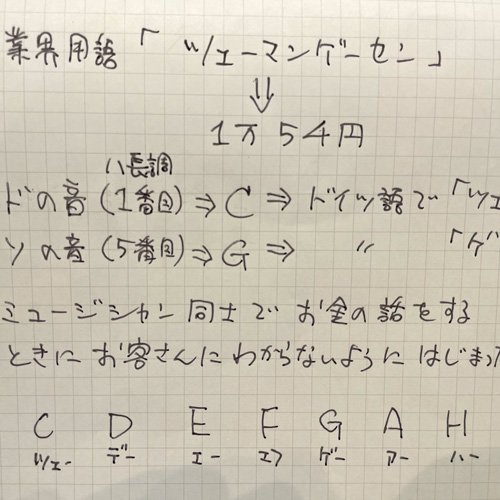 業界用語「ツェーマンゲーセン」
⇓
1万54円
ハ長調
ドの音(1番目)⇒C⇒ドイツ語で「ツェ
ソの音(5番目)⇒G⇒ 〃 「ゲ
ミュージシャン同士でお金の話をする
ときにお客さんにわからないようにはじまっ
C D E F G A H
ツェー デー エー エフ ゲー アー ハー